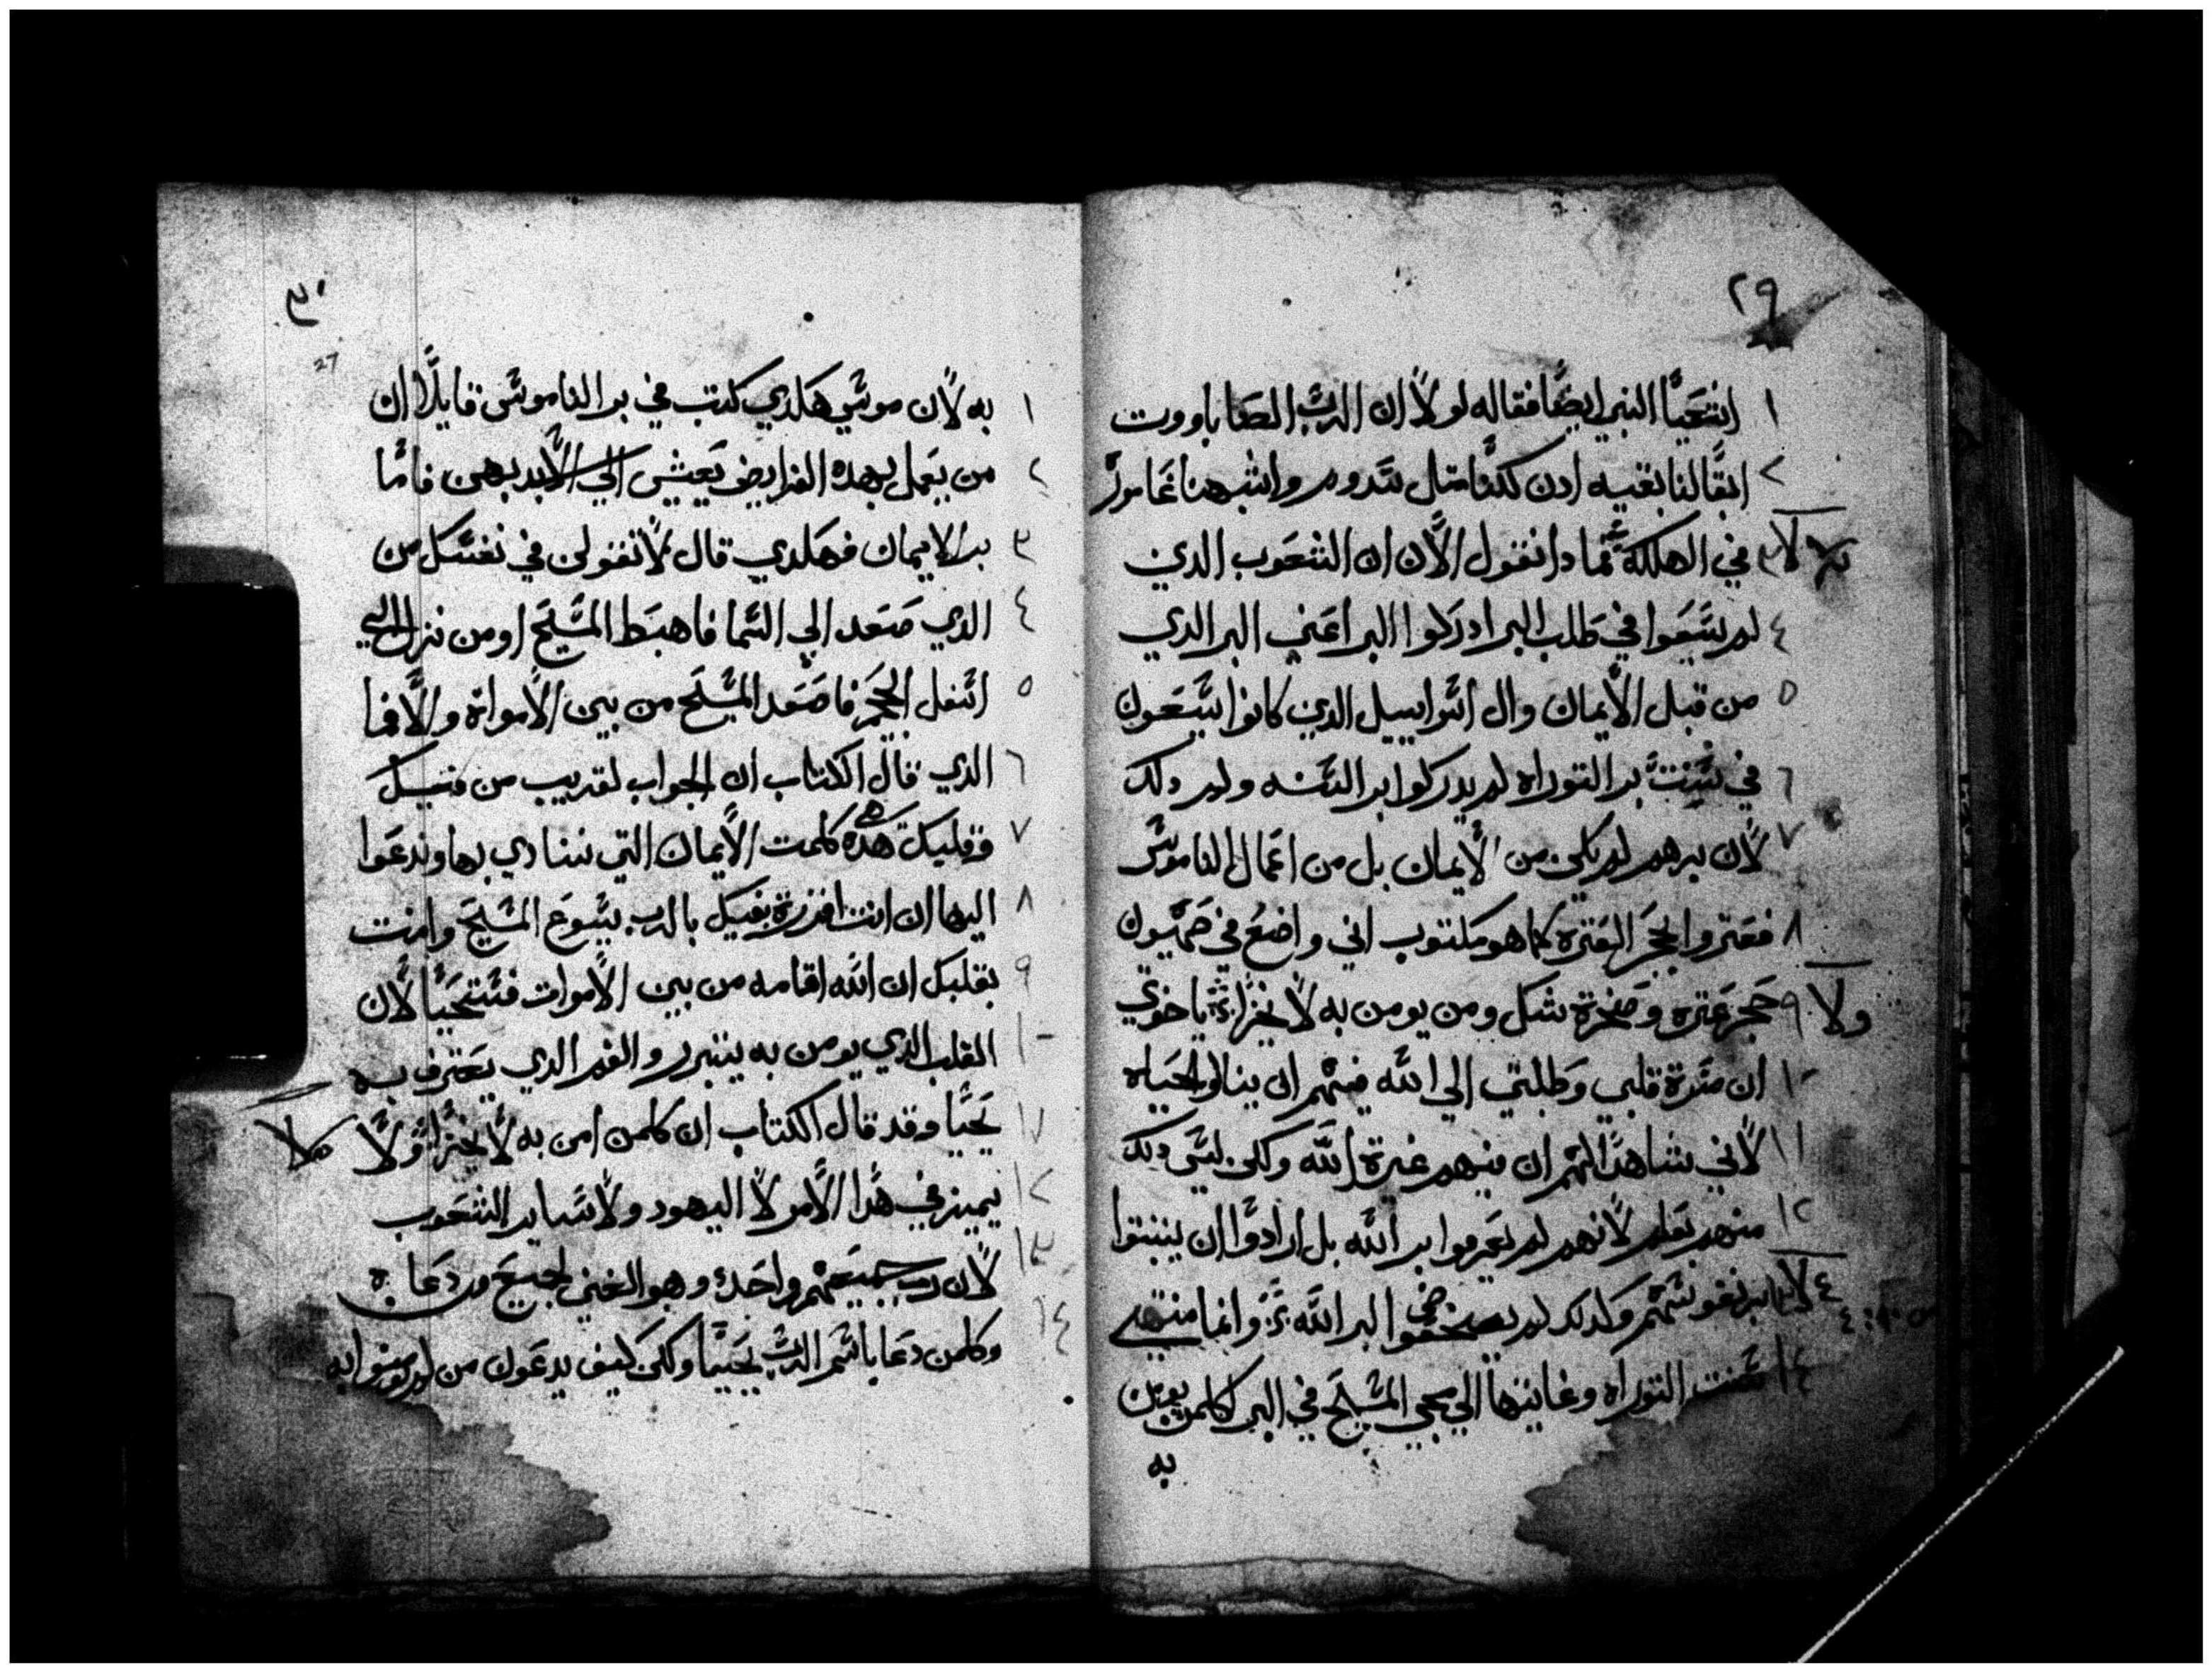 ٢٩
١ اشعيا النبي ايضا فقاله لولا ان الرب الصاباووت
٢ ابقا لنا بقيه ادن لكنا متل سدوم واشبهنا غامورا
٣ في الهلكة فمادا نقول الان ان الشعوب الدين
٤ لم يسعوا في طلب البر ادركوا البر اعني البر الدي
٥ من قبل الايمان وال اسراييل الدين كانوا يسعون
٦ في سنت بر التوراه لم يدركوا بر السنه ولم دلك
٧ لان برهم لم يكن من الايمان بل من اعمال الناموس
٨ فعتروا بحجر العترة كما هو مكتوب اني واضع في صهيون
ولا ٩ حجر عترة وصخرة شك ومن يومن به لا يخزا يا اخوتي
١٠ ان مسرة قلبي وطلبتي الي الله فيهم ان ينالوا الحياه
١١ لاني شاهدا لهم ان فيهم غيرة الله ولكن ليس دلك
١٢ منهم بعلم لانهم لم يعرفوا بر الله بل ارادوا ان يثبتوا
بر نفوسهم ولدلك لم يخضعوا لبر الله وانما منتهي
١٤ سنت التوراه وغايتها الي مجي المسيح في البر لكلمن يومن
به
٣٠
27
١ به لان موسي هكدي كتب في بر الناموس قايلا ان
٢ من يعمل بهده الفرايض يعيش الي الابد بهن فاما
٣ بر الايمان فهكدي قال لا تقولن في نفسك من
٤ الدي صعد الي السما فاهبط المسيح او من نزل الي
٥ اسفل الجحيم فاصعد المسيح من بين الاموات والا فما
٦ الدي قال الكتاب ان الجواب لقريب من فيك
٧ وقلبك هده هي كلمت الايمان التي ننادي بها وندعوا
٨ اليها ان انت اقررة بفيك بالرب يسوع المسيح وامنت
٩ بقلبك ان الله اقامه من بين الاموات فستحيا لان
١٠ القلب الدي يومن به يتبرر والفم الدي يعترف به
١١ يحيا وقد قال الكتاب ان كلمن امن به لا يخزا ولا
١٢ يميز في هدا الامر لا اليهود ولا ساير الشعوب
١٣ لان رب جميعهم واحد وهو الغني لجميع من دعا به
١٤ وكلمن دعا باسم الرب يحيا ولكن كيف يدعون من لم يومنوا به